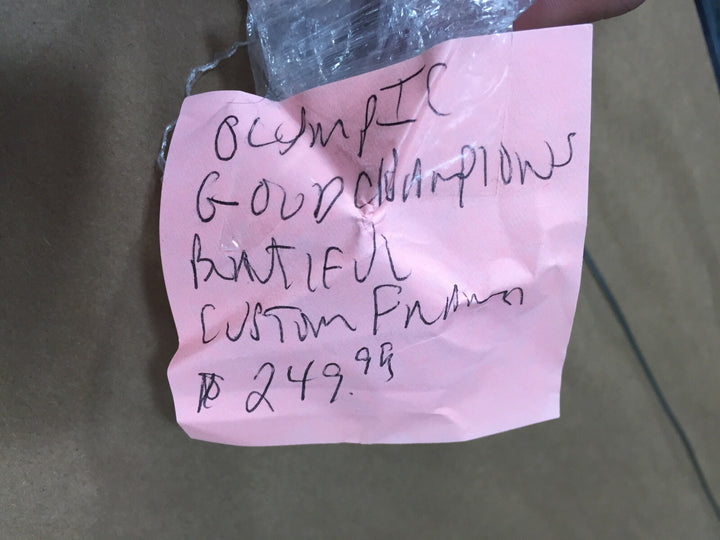 OLYMPIC
GOLD CHAMPIONS
BEATIFUL
CUSTOM FRAMES
$ 249.99